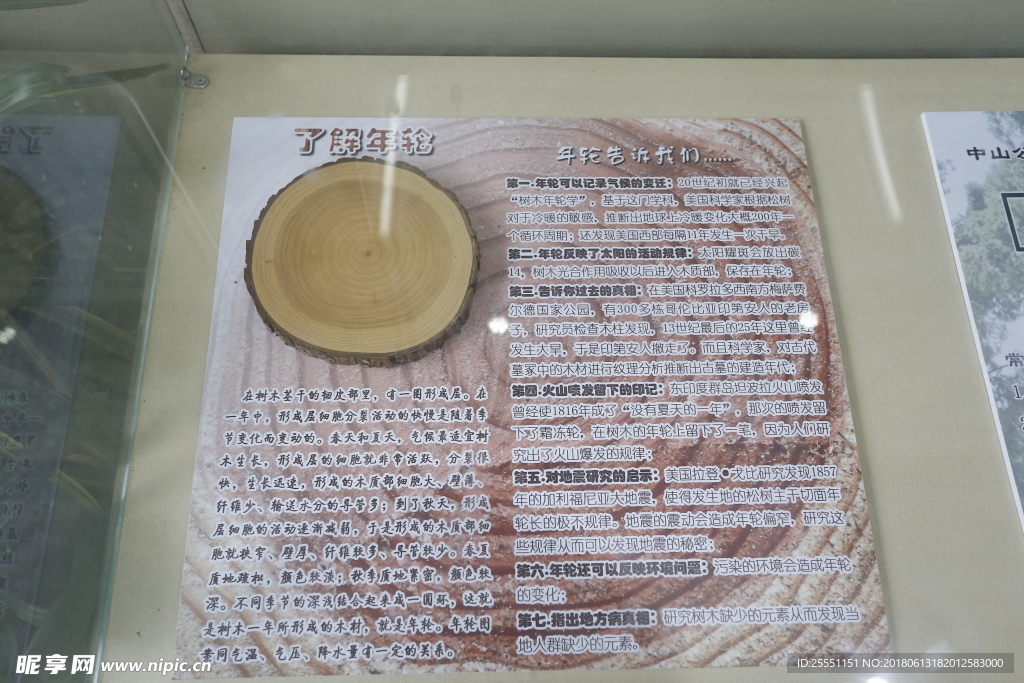 了解年轮
在树木茎干的韧皮部里，有一圈形成层。在
一年中，形成层细胞分裂活动的快慢是随着季
节变化而变动的。春天和夏天，气候最适宜树
木生长，形成层的细胞就非常活跃，分裂很
快，生长迅速，形成的木质部细胞大、壁薄、
纤维少、输送水分的导管多；到了秋天，形成
层细胞的活动逐渐减弱，于是形成的木质部细
胞就狭窄、壁厚、纤维较多、导管较少。春夏
质地疏松，颜色较淡；秋季质地紧密，颜色较
深。不同季节的深浅结合起来成一圆环，这就
是树木一年所形成的木材，就是年轮。年轮图
案同气温、气压、降水量有一定的关系。
年轮告诉我们……
第一.年轮可以记录气候的变迁：20世纪初就已经兴起
“树木年轮学”，基于这门学科，美国科学家根据松树
对于冷暖的敏感，推断出地球上冷暖变化大概200年一
个循环周期；还发现美国西部每隔11年发生一次干旱。
第二.年轮反映了太阳的活动规律：太阳耀斑会放出碳
14，树木光合作用吸收以后进入木质部，保存在年轮；
第三.告诉你过去的真相：在美国科罗拉多西南方梅萨费
尔德国家公园，有300多栋哥伦比亚印第安人的老房
子，研究员检查木柱发现，13世纪最后的25年这里曾经
发生大旱，于是印第安人撤走了。而且科学家，对古代
墓家中的木材进行纹理分析推断出古墓的建造年代；
第四.火山喷发留下的印记：东印度群岛坦波拉火山喷发
曾经使1816年成了“没有夏天的一年”，那次的喷发留
下了霜冻轮，在树木的年轮上留下了一笔，因为人们研
究出了火山爆发的规律；
第五.对地震研究的启示：美国拉登•戈比研究发现1857
年的加利福尼亚大地震，使得发生地的松树主干切面年
轮长的极不规律。地震的震动会造成年轮偏窄，研究这
些规律从而可以发现地震的秘密；
第六.年轮还可以反映环境问题：污染的环境会造成年轮
的变化；
第七.指出地方病真相：研究树木缺少的元素从而发现当
地人群缺少的元素。
中山公
常
昵享网 www.nipic.cn
ID:25551151 NO:20180613182012583000